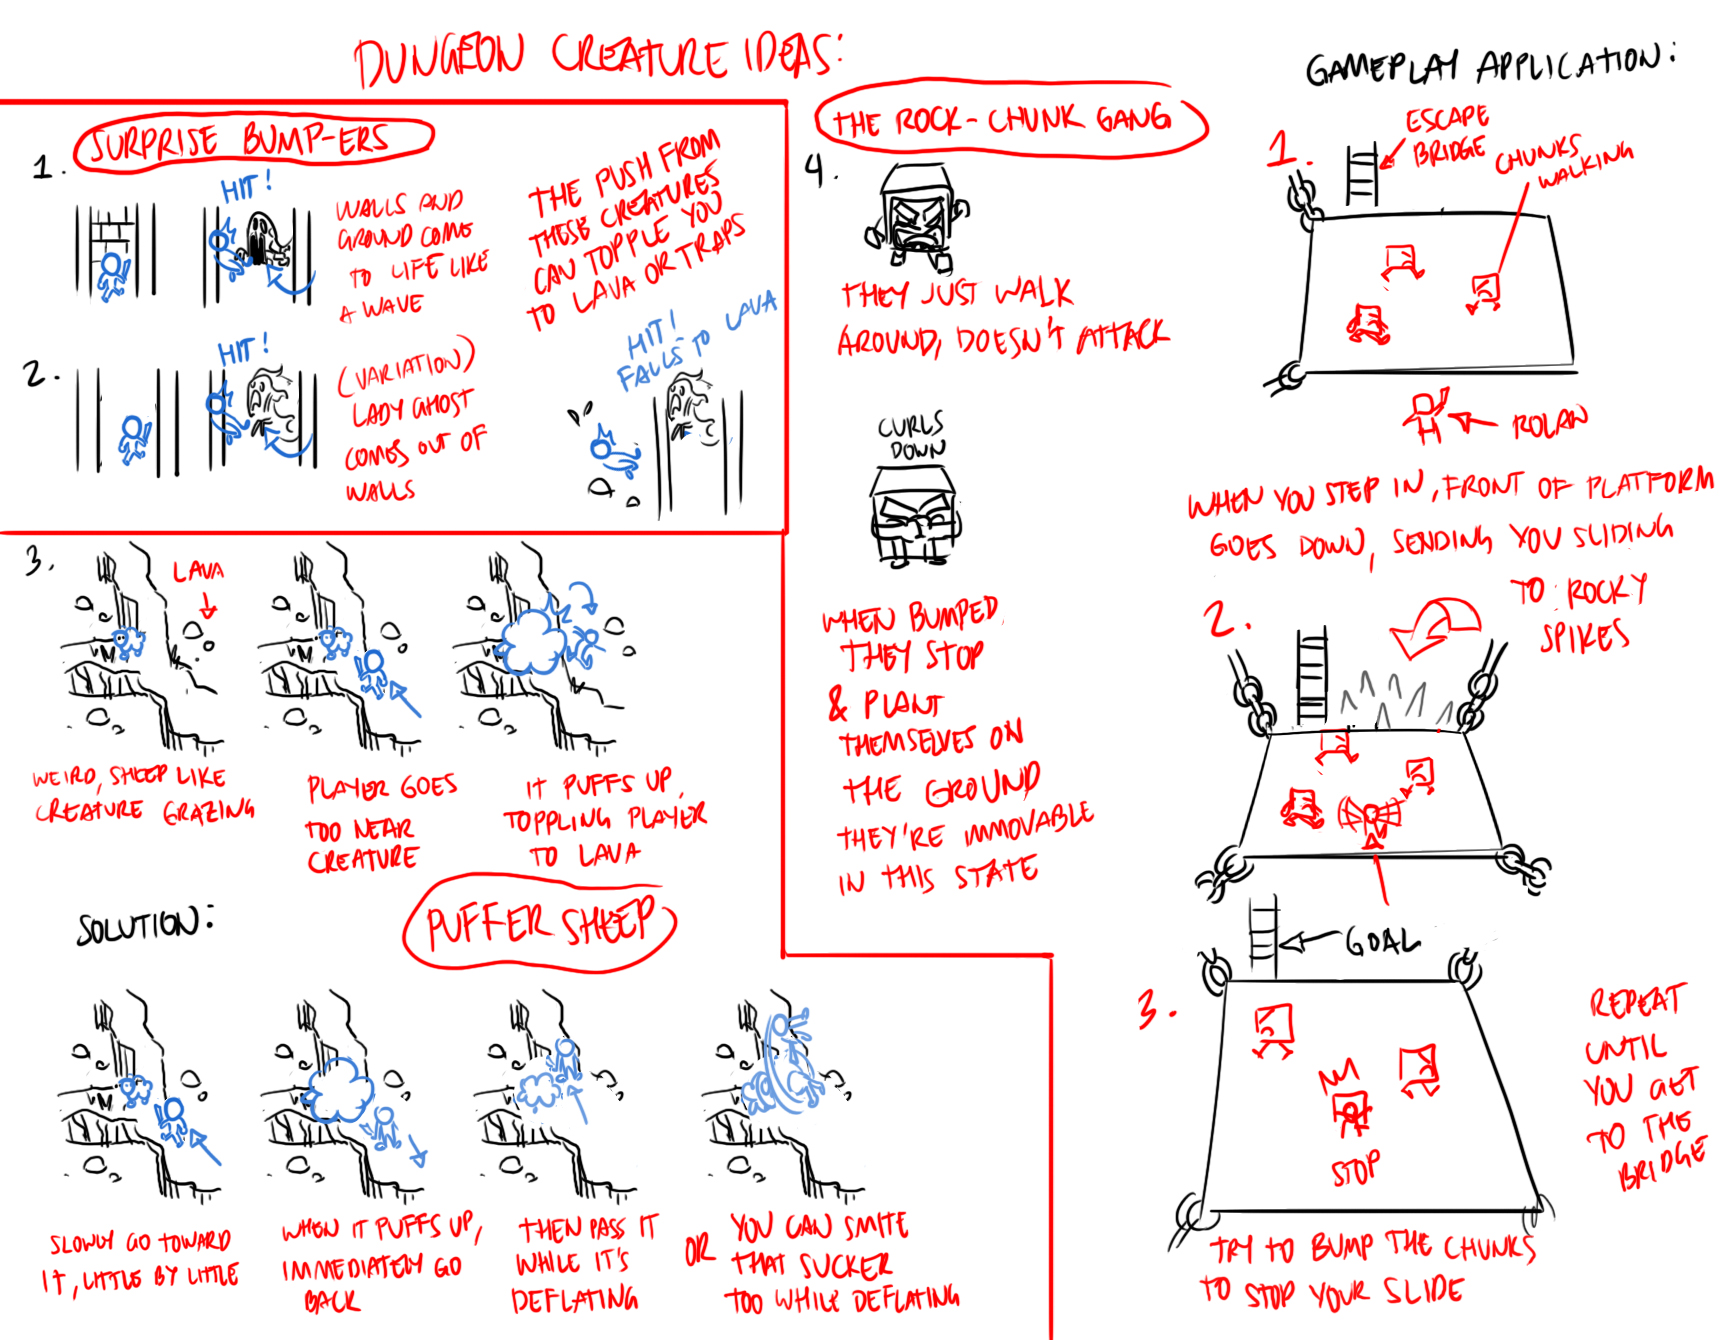 DUNGEON CREATURE IDEAS:
SURPRISE BUMP-ERS
1.
HIT!
WALLS AND
GROUND COME
TO LIFE LIKE
A WAVE
THE PUSH FROM
THESE CREATURES
CAN TOPPLE YOU
TO LAVA OR TRAPS
2.
HIT!
(VARIATION)
LADY GHOST
COMES OUT OF
WALLS
HIT!
FALLS TO LAVA
3.
LAVA
WEIRD, SHEEP LIKE
CREATURE GRAZING
PLAYER GOES
TOO NEAR
CREATURE
IT PUFFS UP,
TOPPLING PLAYER
TO LAVA
PUFFER SHEEP
SOLUTION:
SLOWLY GO TOWARD
IT, LITTLE BY LITTLE
WHEN IT PUFFS UP,
IMMEDIATELY GO
BACK
THEN PASS IT
WHILE IT'S
DEFLATING
OR
YOU CAN SMITE
THAT SUCKER
TOO WHILE DEFLATING
THE ROCK-CHUNK GANG
4.
THEY JUST WALK
AROUND, DOESN'T ATTACK
CURLS
DOWN
WHEN BUMPED,
THEY STOP
& PLANT
THEMSELVES ON
THE GROUND
THEY'RE IMMOVABLE
IN THIS STATE
GAMEPLAY APPLICATION:
1.
ESCAPE
BRIDGE
CHUNKS
WALKING
ROLAN
WHEN YOU STEP IN, FRONT OF PLATFORM
GOES DOWN, SENDING YOU SLIDING
TO ROCKY
SPIKES
2.
GOAL
3.
STOP
REPEAT
UNTIL
YOU GET
TO THE
BRIDGE
TRY TO BUMP THE CHUNKS
TO STOP YOUR SLIDE